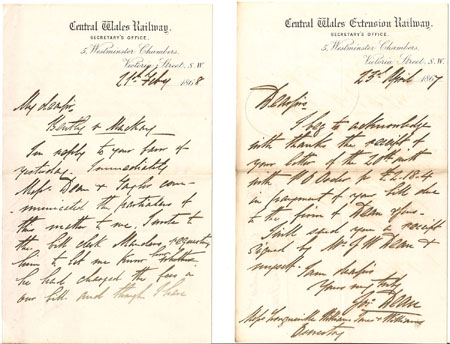 Central Wales Railway.
SECRETARY'S OFFICE.
5, Westminster Chambers,
Victoria Street, S.W.
21st Feby 1868
My dear Sir
Bentley & Mackay
In reply to your favor of
yesterday. Immediately
Messrs Dean & Taylor com-
-municated the particulars of
this matter to me. I wrote to
the bill clerk requesting
him to let me know whether
he had charged the fees in
our bill. and though I have
Central Wales Extension Railway.
SECRETARY'S OFFICE.
5, Westminster Chambers,
Victoria Street, S.W.
23rd April 1867
Dear Sir
I beg to acknowledge
with thanks the receipt of
your letter of the 20th inst
with P O Order for £2.18.4
in payment of your bill due
to the firm of Dean
I will send you a receipt
signed by Mr J W Dean &
myself. I am dear Sir
Yours very truly
Jos: Dean
Messrs Longueville Williams Jones & Williams
Oswestry